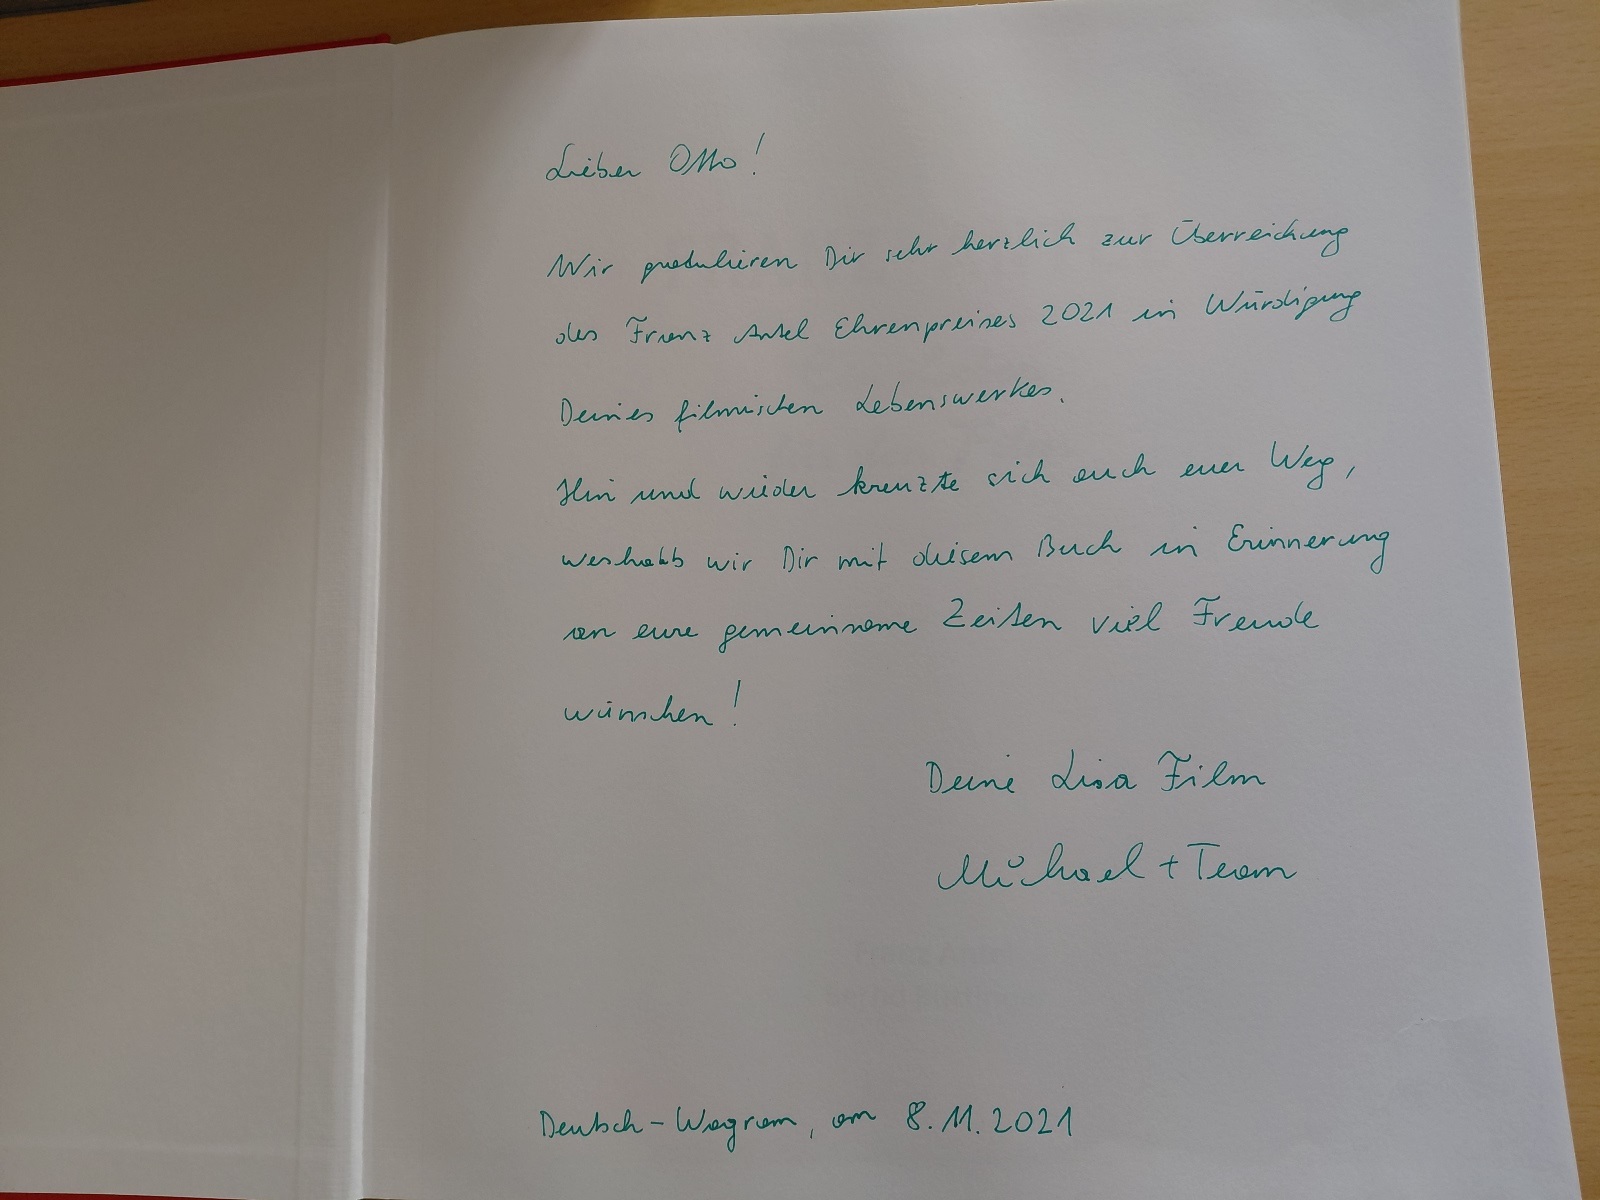 Lieber Otto!
Wir gratulieren Dir sehr herzlich zur Überreichung
des Franz Antel Ehrenpreises 2021 in Würdigung
Deines filmischen Lebenswerkes.
Hin und wieder kreuzte sich auch euer Weg,
weshalb wir Dir mit diesem Buch in Erinnerung
an eure gemeinsame Zeiten viel Freude
wünschen!
Deine Lisa Film
Michael + Team
Deutsch-Wagram, am 8.11.2021